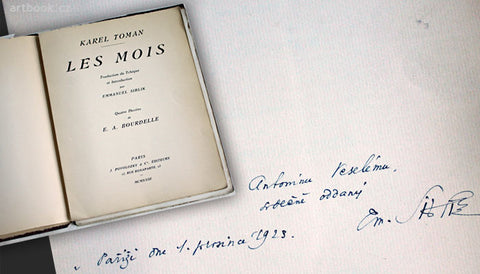 artbook.cz
KAREL TOMAN
LES MOIS
Traduction du Tchèque
et Introduction
par
EMMANUEL SIBLIK
Quatre Dessins
de
E. A. BOURDELLE
PARIS
J. POVOLOZKY & Cⁱᵉ, ÉDITEURS
13 RUE BONAPARTE, 13
Antonínu Veselému,
srdečně oddaný
Em.
v Paříži dne 1. prosince 1923.